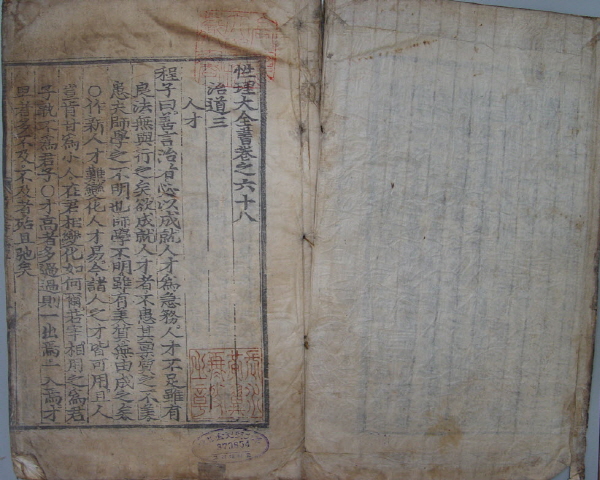 性理大全書卷之六十八
治道三
人才
程子曰善言治者必以成就人才爲急務人才不足雖有
良法無與行之矣欲成就人才者不患其稟質之不美
患夫師學之不明也師學不明雖有美質無由成之矣
○作新人才難變化人才易今諸人之才皆可用且人
豈肯甘爲小人在君相變化如何爾若宰相用之爲君
子孰不爲君子○才高者多過過則一出焉一入焉才
卑者多不及不及者殆且弛矣